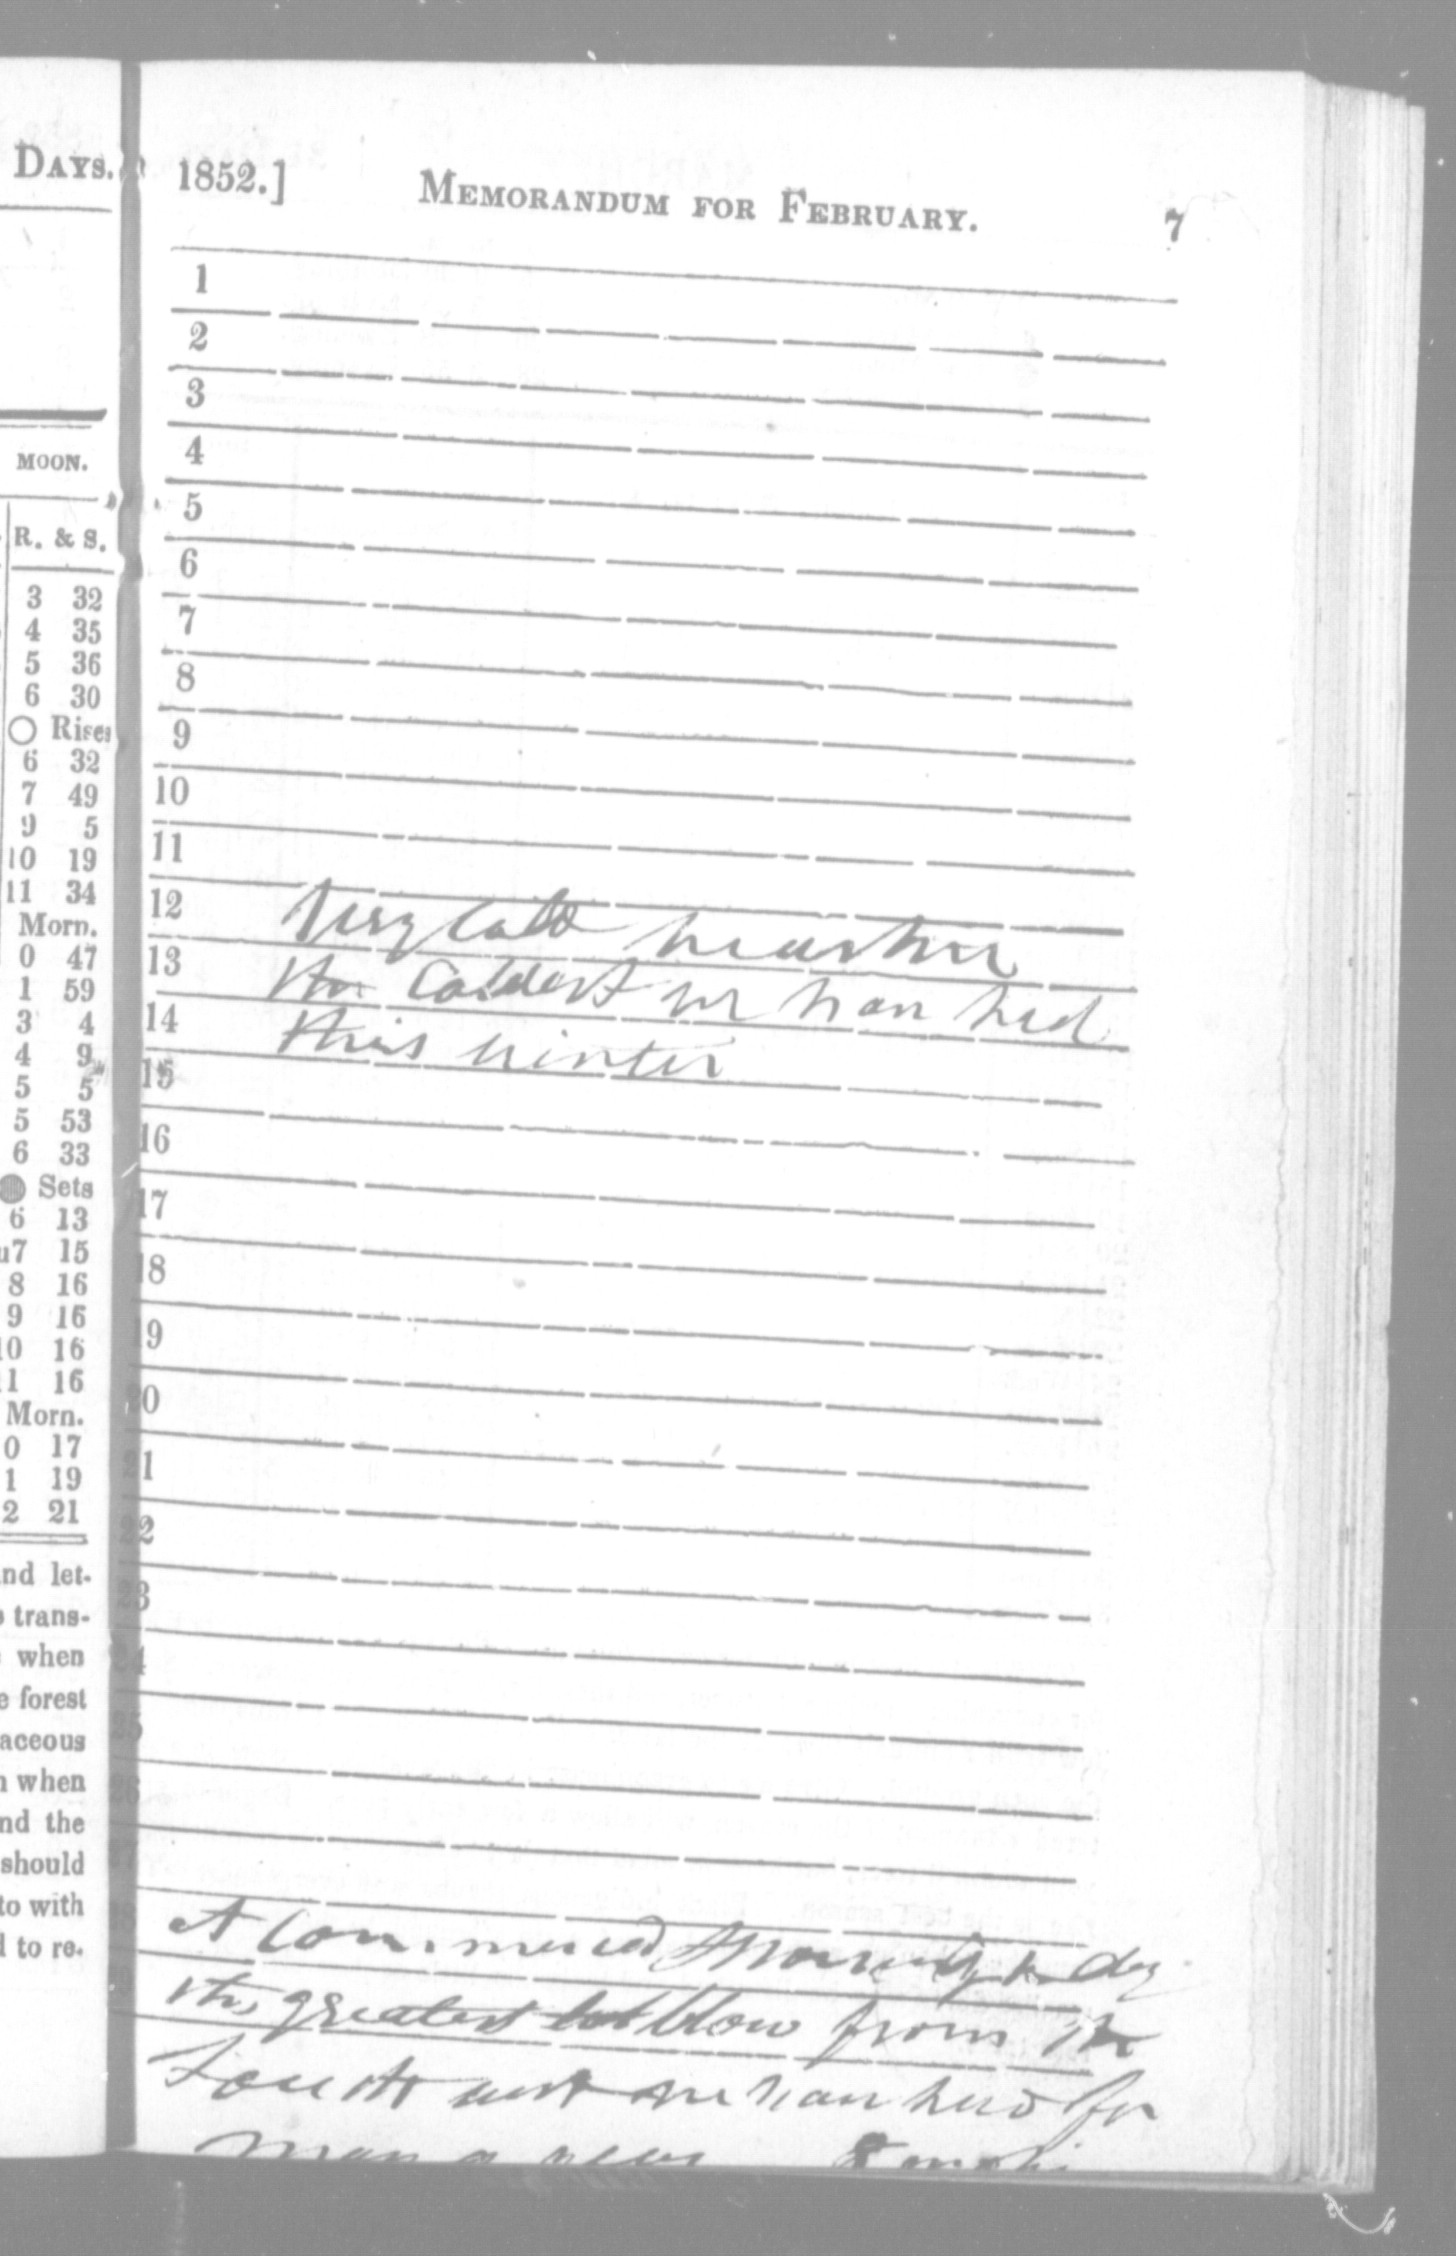 DAYS.
MOON.
R. & S.
3 32
4 35
5 36
6 30
Rises
6 32
7 49
9 5
10 19
11 34
Morn.
0 47
1 59
3 4
4 9
5 5
5 53
6 33
Sets
6 13
7 15
8 16
9 16
10 16
11 16
Morn.
0 17
1 19
2 21
and let-
trans-
when
forest
aceous
when
and the
should
to with
to re-
1852.] MEMORANDUM FOR FEBRUARY. 7
1
2
3
4
5
6
7
8
9
10
11
12 Very Cold weather
13 the Coldest we have had
14 this winter
15
16
17
18
19
20
21
22
23
24
25
26
A Commenced to day
the greatest blow from the
South west we have had for
many